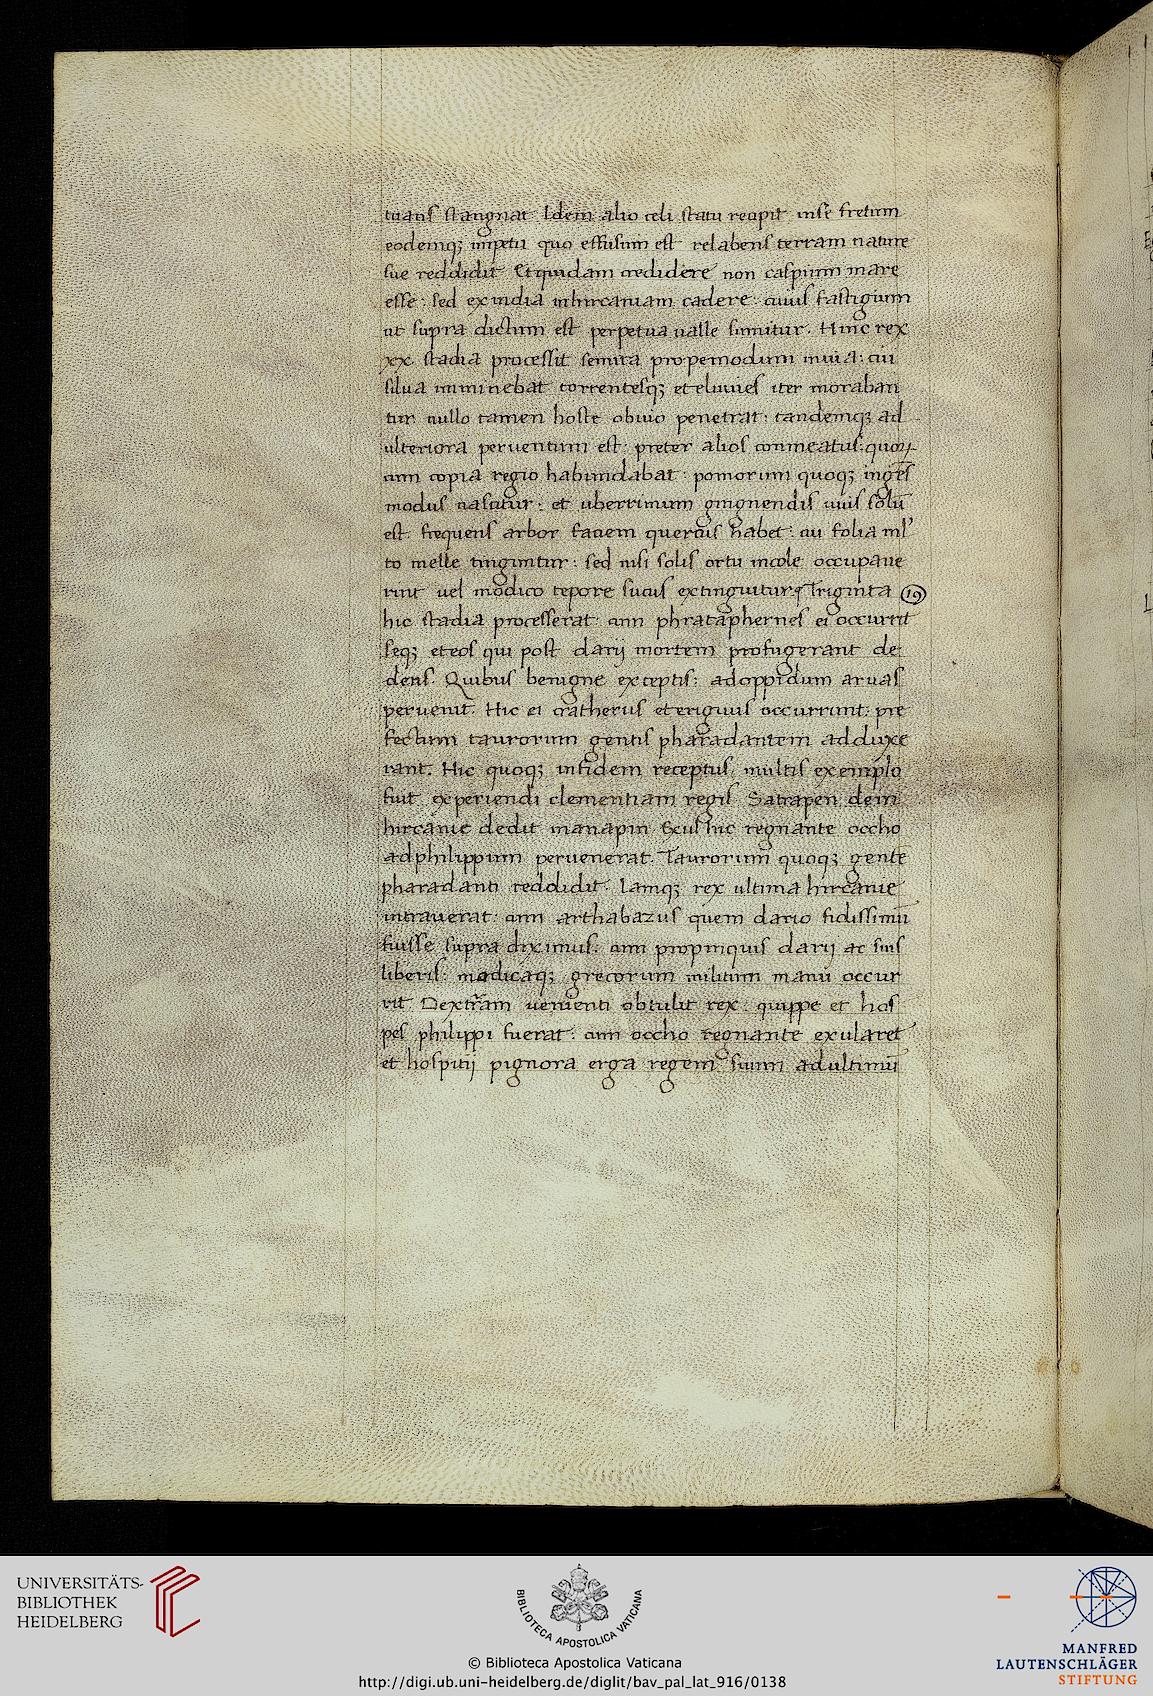 tuans stangnat Idem alio celi statu recipit inse fretum
eodemq; impetu quo effusum est relabens terram nature
sue reddidit Et quidam credidere non caspium mare
esse: sed ex india inhircaniam cadere: cuius fastigium
ut supra dictum est perpetua ualle sumitur. Hinc rex
xx. stadia processit semita propemodum inuia: cui
silua imminebat torrentesq; et eluuies iter moraban
tur nullo tamen hoste obuio penetrat: tandemq; ad
ulteriora peruentum est: preter alios commeatus: quoꝝ
tum copia regio habundabat: pomorum quoq; inges̄
modus nascitur: et uberrimum gingnendis uuis solū
est frequens arbor faciem quercus habet: cui folia ml'
to melle tinguntur: sed nisi solis ortu incole occupaue
rint uel modico tepore sucus extinguitur Triginta 19
hic stadia processerat: cum phrataphernes ei occurrit
seq; et eos qui post darij mortem profugerant de
dens. Quibus benigne exceptis: ad oppidum aruas
peruenit. Hic ei cratherus et erigiuus occurrunt: pre
fectum taurorum gentis pharadantem adduxe
rant. Hic quoq; infidem receptus multis exemplo
fuit experiendi clementiam regis Satrapen dein
hircanie dedit manapin Exul hic regnante occho
ad philippum peruenerat. Taurorum quoq; gente
pharadanti reddidit. Iamq; rex ultima hircanie
intrauerat: cum arthabazus quem dario fidissimū
fuisse supra diximus: cum propinquis darij ac suis
liberis: modicaq; grecorum militum manu occur
rit Dextram uenienti obtulit rex: quippe et hos
pes philippi fuerat: cum occho regnante exularet
et hospitij pignora erga regem suum ad ultimū
UNIVERSITÄTS-
BIBLIOTHEK
HEIDELBERG
BIBLIOTECA APOSTOLICA VATICANA
© Biblioteca Apostolica Vaticana
http://digi.ub.uni-heidelberg.de/diglit/bav_pal_lat_916/0138
MANFRED
LAUTENSCHLÄGER
STIFTUNG